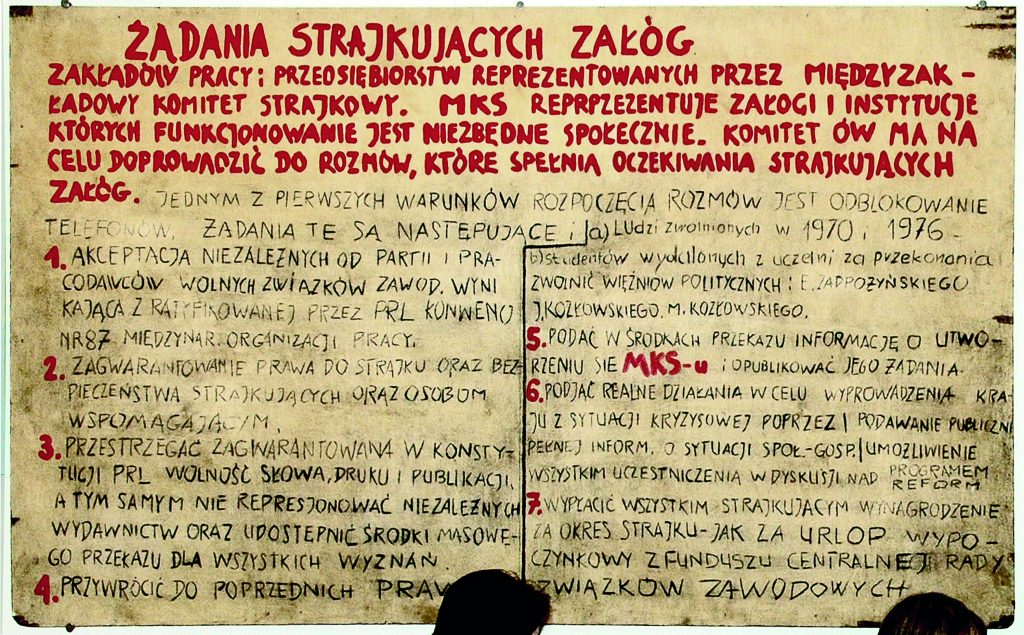 ŻĄDANIA STRAJKUJĄCYCH ZAŁÓG
ZAKŁADÓW PRACY i PRZEDSIĘBIORSTW REPREZENTOWANYCH PRZEZ MIĘDZYZAK -
ŁADOWY KOMITET STRAJKOWY. MKS REPRPZEZENTUJE ZAŁOGI I INSTYTUCJE
KTÓRYCH FUNKCJONOWANIE JEST NIEZBĘDNE SPOŁECZNIE. KOMITET ÓW MA NA
CELU DOPROWADZIĆ DO ROZMÓW, KTÓRE SPEŁNIĄ OCZEKIWANIA STRAJKUJĄCYCH
ZAŁÓG. JEDNYM Z PIERWSZYCH WARUNKÓW ROZPOCZĘCIA ROZMÓW JEST ODBLOKOWANIE
TELEFONÓW. ŻĄDANIA TE SĄ NASTĘPUJĄCE :
1. AKCEPTACJA NIEZALEŻNYCH OD PARTII I PRA-
CODAWCÓW WOLNYCH ZWIĄZKÓW ZAWOD. WYNI
KAJĄCA Z RATYFIKOWANEJ PRZEZ PRL KONWENCJ
NR87 MIĘDZYNAR. ORGANIZACJI PRACY.
2. ZAGWARANTOWANIE PRAWA DO STRAJKU ORAZ BEZ-
PIECZEŃSTWA STRAJKUJĄCYCH ORAZ OSOBOM
WSPOMAGAJĄCYM.
3. PRZESTRZEGAĆ ZAGWARANTOWANĄ W KONSTY-
TUCJI PRL WOLNOŚĆ SŁOWA, DRUKU I PUBLIKACJI,
A TYM SAMYM NIE REPRESJONOWAĆ NIEZALEŻNYCH
WYDAWNICTW ORAZ UDOSTĘPNIĆ ŚRODKI MASOWE-
GO PRZEKAZU DLA WSZYSTKICH WYZNAŃ
4. PRZYWRÓCIĆ DO POPRZEDNICH PRAW
a) LUdzi zwolnionych w 1970 i 1976 -
b) studentów wydalonych z uczelni za przekonania
ZWOLNIĆ WIĘŹNIÓW POLITYCZNYCH : E. ZADROŻYŃSKIEGO
J. KOZŁOWSKIEGO, M. KOZŁOWSKIEGO.
5. PODAĆ W ŚRODKACH PRZEKAZU INFORMACJĘ O UTWO-
RZENIU SIĘ MKS-u I OPUBLIKOWAĆ JEGO ŻĄDANIA.
6. PODJĄĆ REALNE DZIAŁANIA W CELU WYPROWADZENIA KRA-
JU Z SYTUACJI KRYZYSOWEJ POPRZEZ | PODAWANIE PUBLICZNI
PEŁNEJ INFORM. O SYTUACJI SPOŁ-GOSP. | UMOŻLIWIENIE
WSZYSTKIM UCZESTNICZENIA W DYSKUSJI NAD PROGRAMEM
REFORM
7. WYPŁACIĆ WSZYSTKIM STRAJKUJĄCYM WYNAGRODZENIE
ZA OKRES STRAJKU - JAK ZA URLOP WYPO -
CZYNKOWY Z FUNDUSZU CENTRALNEJ RADY
ZWIĄZKÓW ZAWODOWYCH